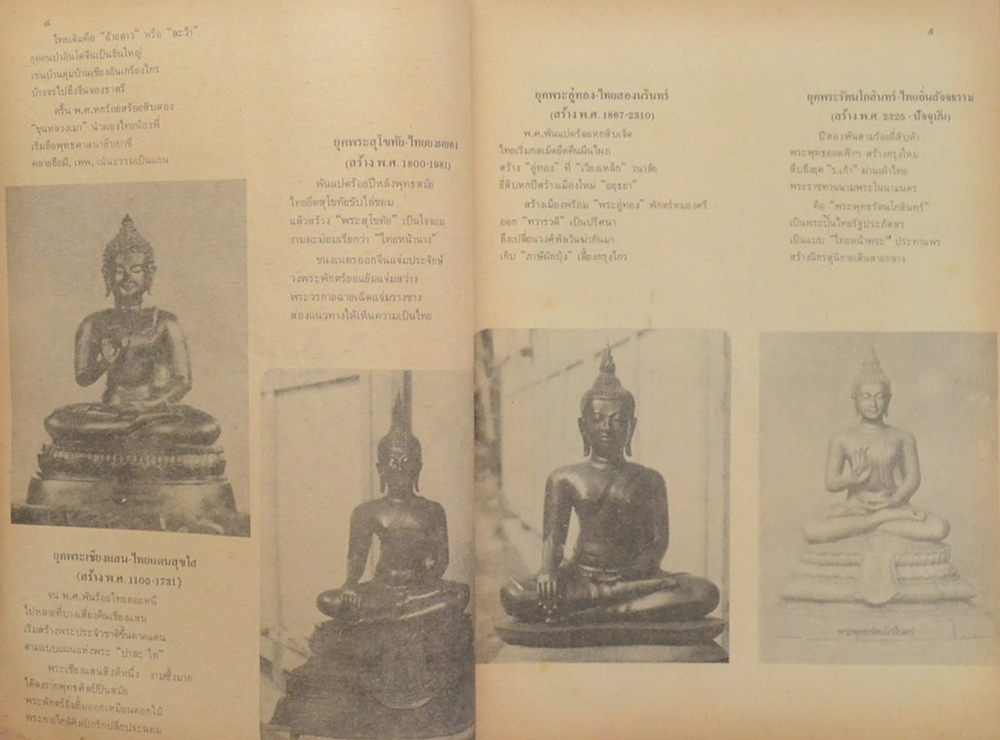 ๘
ไทยเดิมคือ "อ้ายลาว" หรือ "ละว้า"
ยุคคนป่าอินโดจีนเป็นถิ่นใหญ่
เช่นบ้านลุ่มบ้านเชียงอันเกรียงไกร
บ้างจรไปถึงจีนจองราศรี
ครั้น พ.ศ.หกร้อยสร้อยสิบสอง
"ขุนหลวงเมา" นำผองไทยน้องพี่
เริ่มถือพุทธศาสนา
คลายถือผี, เทพ, เน้นธรรมเป็นแกน
ยุคพระเชียงแสน-ไทยแดนสุขใส
(สร้าง พ.ศ. 1100-1731)
จน พ.ศ.พันร้อยไทยถอยหนี
ไปหลายที่บางเสียงคืนเชียงแสน
เริ่มสร้างพระประจำชาติขึ้นดาดแดน
ตามแบบแผนแห่งพระ "ปาละ-ไต"
พระเชียงแสนสิงห์หนึ่ง งามซึ้งมาก
ได้ลงรากพุทธศิลป์เป็นสมัย
พระพักตร์อิ่มเอิบออกเหมือนดอกไม้
ยุคพระสุโขทัย-ไทยยงผยอง
(สร้าง พ.ศ. 1800-1981)
พันแปดร้อยปีหลังพุทธสมัย
ไทยยึดสุโขทัยขับไล่ขอม
แล้วสร้าง "พระสุโขทัย" เป็นใจจอม
งามละม่อมเรียกว่า "ไทยหน้านาง"
ขนงเนตรออกจีนแจ่มประจักษ์
วงพระพักตร์ยอแย้มแจ่มสว่าง
พระวรกายฉายเฉิดแจ่มรางชาง
ส่องแนวทางให้เห็นความเป็นไทย
๙
ยุคพระอู่ทอง-ไทยสองนรินทร์
(สร้าง พ.ศ. 1867-2310)
พ.ศ.พันแปดร้อยหกสิบเจ็ด
ไทยเริ่มกลเม็ดยึดคืนผืนไผท
สร้าง "อู่ทอง" ที่ "เวียงเหล็ก" วนาลัย
ยี่สิบหกปีสร้างเมืองใหม่ "อยุธยา"
สร้างเมืองพร้อม "พระอู่ทอง" พักตร์หมองศรี
ออก "ทวารวดี" เป็นปริศนา
ถึงเปลี่ยนวงศ์พัลวันฆ่ากันมา
เก็บ "ภาษีผักบุ้ง" เลี้ยงกรุงไกร
ยุคพระรัตนโกสินทร์-ไทยถิ่นสัจจธรรม
(สร้าง พ.ศ. 2325-ปัจจุบัน)
ปีสองพันสามร้อยยี่สิบห้า
พระพุทธยอดฟ้าฯ สร้างกรุงใหม่
สืบถึงยุค "ร.เก้า" ผ่านเผ้าไทย
พระราชทานนามพระโนนามนคร
คือ "พระพุทธรัตนโกสินทร์"
เป็นพระปิ่นไทยรัฐประภัสสร
เป็นแบบ "ไทยหน้าพระ" ประทานพร